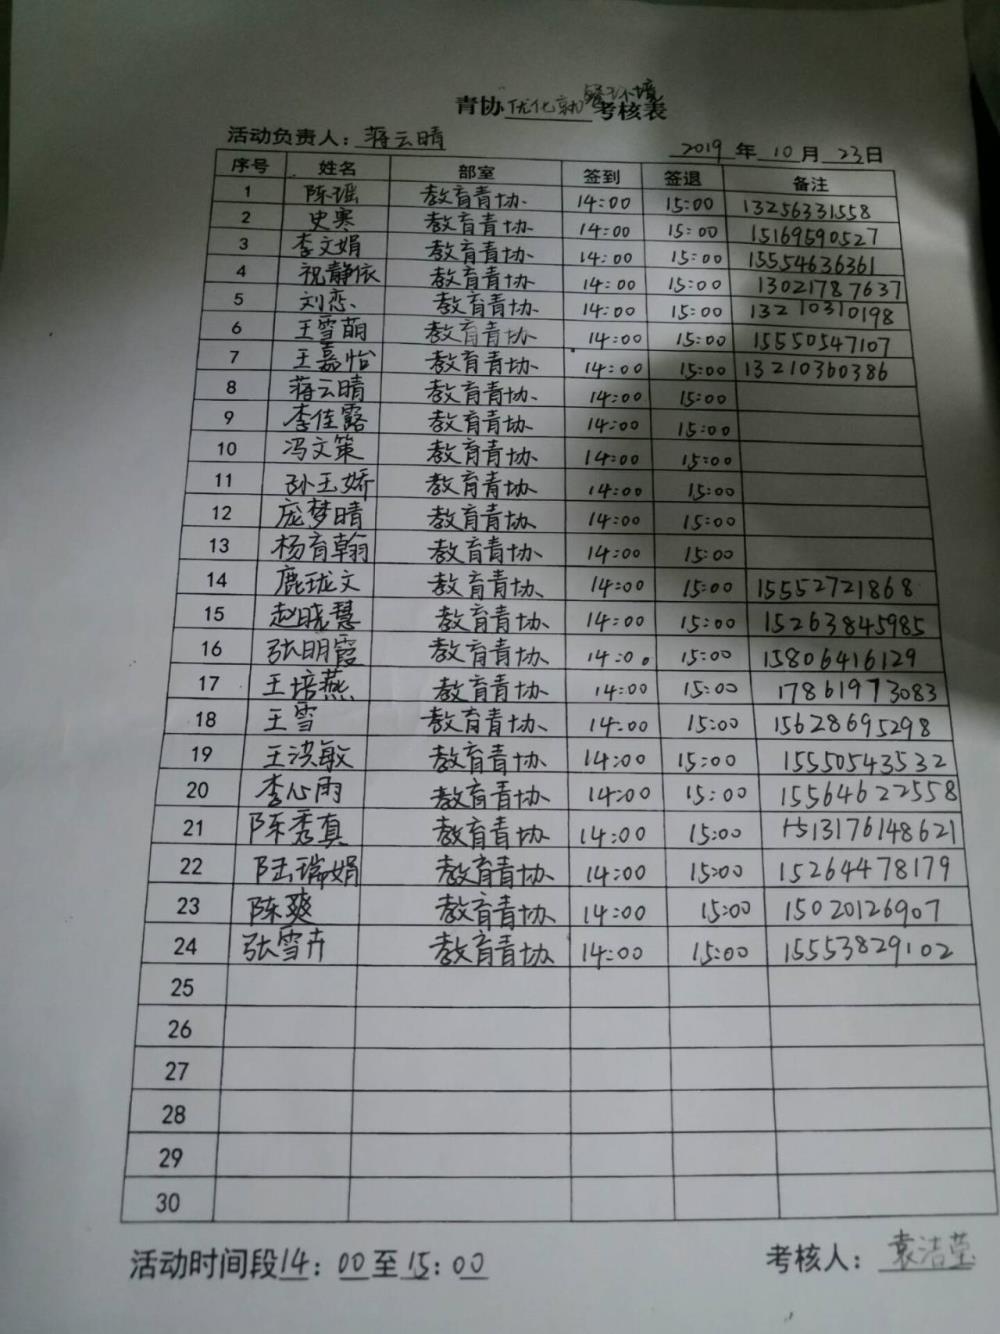 青协优化就餐环境考核表
活动负责人：蒋云晴 2019年10月23日
序号 姓名 部室 签到 签退 备注
1 陈瑶 教育青协 14:00 15:00 13256331558
2 史寒 教育青协 14:00 15:00 15169590527
3 李文娟 教育青协 14:00 15:00 15554636361
4 祝静依 教育青协 14:00 15:00 13021787637
5 刘恋 教育青协 14:00 15:00 13210310198
6 王雪萌 教育青协 14:00 15:00 15550547107
7 王嘉怡 教育青协 14:00 15:00 13210360386
8 蒋云晴 教育青协 14:00 15:00
9 李佳露 教育青协 14:00 15:00
10 冯文策 教育青协 14:00 15:00
11 孙玉娇 教育青协 14:00 15:00
12 庞梦晴 教育青协 14:00 15:00
13 杨育翰 教育青协 14:00 15:00
14 鹿珑文 教育青协 14:00 15:00 15552721868
15 赵晓慧 教育青协 14:00 15:00 15263845985
16 张明霞 教育青协 14:00 15:00 15806416129
17 王培燕 教育青协 14:00 15:00 17861973083
18 王雪 教育青协 14:00 15:00 15628695298
19 王洪敏 教育青协 14:00 15:00 15550543532
20 李心雨 教育青协 14:00 15:00 15564622558
21 陈秀真 教育青协 14:00 15:00 13176148621
22 陆瑞娟 教育青协 14:00 15:00 15264478179
23 陈爽 教育青协 14:00 15:00 15020126907
24 张雪卉 教育青协 14:00 15:00 15553829102
25
26
27
28
29
30
活动时间段14：00至15：00 考核人：袁洁莹